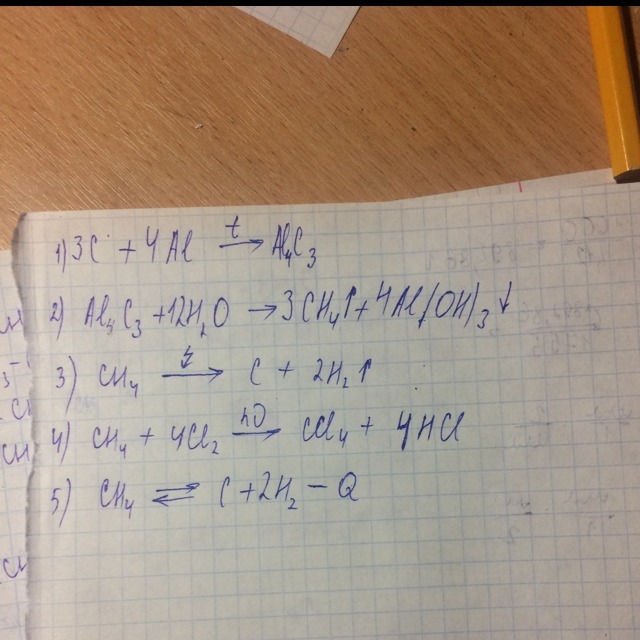 1) 3C + 4Al t→ Al₄C₃
2) Al₄C₃ + 12H₂O → 3CH₄↑ + 4Al(OH)₃↓
3) CH₄ t→ C + 2H₂↑
4) CH₄ + 4Cl₂ hν→ CCl₄ + 4HCl
5) CH₄ ⇌ C + 2H₂ − Q